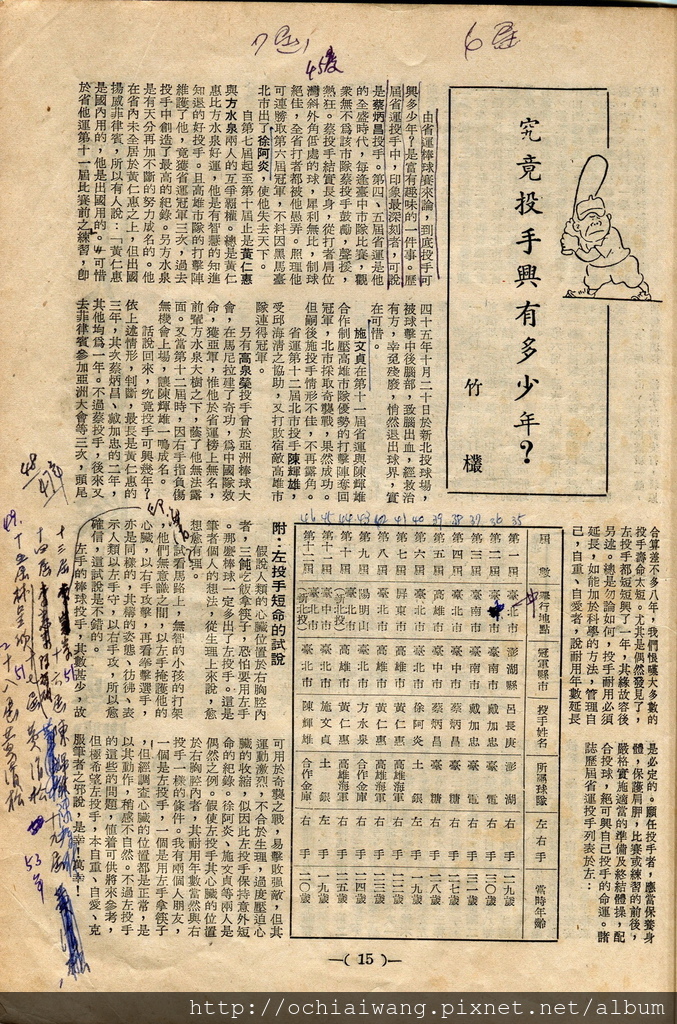 7屆,
6屆
45度
究竟投手興有多少年?
竹欉
由省運棒球賽來論,到底投手可
興多少年?是富有趣味的一件事。歷
屆省運投手中,印象最深刻者,可說
是蔡炳昌投手。第四、五屆省運是他
的全盛時代,每逢臺中市隊比賽,觀
衆無不爲該市隊蔡投手鼓勵,聲援,
熱狂。蔡投手結實長身,從打者肩位
灣斜外角低處的球,犀利無比,制球
絕佳,全省打者都被他愚弄。照理他
可連勝取第六屆冠軍,不料因黑馬臺
北市出了徐阿炎,使他失去天下。
自第七屆起至第十屆止是黃仁惠
與方水泉兩人的互爭霸權。總是黃仁
惠比方水泉好運,他是有智慧的知進
知退的好投手。且高雄市隊的打擊陣
維護了他,竟獲省運冠軍三次,過去
投手中創造了最高的紀錄。另方水泉
是有天分再加不斷的努力成名的。他
在省內未全居於黃仁惠之上,但出國
揚威菲律賓,所以有人說:「黃仁惠
是國內用的,他是出國用的。」可惜
於省他運第十一屆比賽前之練習,卽
四十五年十月二十日於新北投球場,
被球擊中後腦部,致腦出血,經救治
有方,幸免殘廢,悄然退出球界,實
在可惜。
施文貞在第十一屆省運與陳輝雄
合作制壓高雄市隊優勢的打擊陣奪回
冠軍,北市採取奇襲戰,果然成功。
但嗣後施投手情形不佳,不再露角。
省運第十二屆北市投手陳輝雄,
受邱海清之協助,又打敗宿敵高雄市
隊連得冠軍。
另有高泉榮投手曾於亞洲棒球大
會,在馬尼拉建了奇功,爲中國隊效
命,獲亞軍,惟他於省運榜上無名,
前輩方水泉大樹之下,蔭了他無法露
面。又當第十二屆時,因右手指負傷
無機會上場,讓陳輝雄一鳴成名。
話說回來,究竟投手可興幾年?
依上述情形,判斷,最長是黃仁惠的
三年,其次蔡炳昌、戴加忠的二年,
其他均爲一年。不過蔡投手,後來又
去菲律賓參加亞洲大會等三次,頭尾
合算差不多八年,我們悵嘆大多數的
投手壽命太短。尤其是偶然發見了,
左投手都短短興了一年,其緣故容後
另述。總是勿論如何,投手耐用必須
延長,如能加於科學的方法,管理自
己,自重、自愛者,說耐用年數延長
是必定的。願任投手者,應當保養身
體,保護肩胛,比賽或練習的前後,
嚴格實施適當的準備及終結體操,配
合投球,絕可興自己投手的命運。諸
誌歷屆省運投手列表於左:
46 45 44 43 42 41 40 39 38 37 36 35
屆數 舉行地點 冠軍縣市 投手姓名 所屬球隊 左右手 當時年齡
第一屆 臺北市 澎湖縣 呂長庚 澎湖 右手 二九歲
第二屆 臺中 臺南市 戴加忠 臺電 右手 三〇歲
第三屆 臺南市 臺南市 戴加忠 臺電 右手 三一歲
第四屆 臺中市 臺中市 蔡炳昌 臺糖 右手 二七歲
第五屆 臺中市 蔡炳昌 臺糖 右手 二八歲
第六屆 臺北市 徐阿炎 土銀 左手 一九歲
第七屆 屏東市 高雄市 黃仁惠 高雄海軍 右手
第八屆 臺北市 高雄市 黃仁惠 高雄海軍 右手
第九屆 陽明山(新北投) 臺北市 方水泉 合作金庫 右手
第十屆 臺北市 高雄市 黃仁惠 高雄海軍 右手 二五歲
第十一屆 臺北市 臺北市 土銀 左手 一九歲
第十二屆 臺北市(新北投) 臺北市 陳輝雄 合作金庫 右手 二〇歲
附:左投手短命的試說
假說人類的心臟位置於右胸腔內
者,三飩吃飯拿筷子,恐怕要用左手
。那麼棒球一定多出了左投手。這是
筆者個人的想法,從生理上來說,愈
想愈有理。
試看馬路上,無智的小孩的打架
,他們無意識之間,以左手掩護他的
心臟,以右手攻擊,再看拳擊選手,
亦是同樣的,其霉的姿態、彷彿、表
示人類以左手守,以右手攻,所以愈
確信,這試說是不錯的。
左手的棒球投手,其數甚少,故
可用於奇襲之戰,易擊敗强敵,但其
運動激烈,不合於生理,過度壓迫心
臟的收縮,似因此左投手保持意外短
命的紀錄。徐阿炎、施文貞等兩人是
偶然之例。假使左投手其心臟的位置
於右胸腔內者,其耐用年數當然與右
投手一樣的條件。我有兩個人朋友,
一個是左投手,一個是用左手拿筷子
,但經調查心臟的位置都是正常,是
以其動作,稍感不自然。不過左投手
的這些的問題,值着可供將來參考,
但極希望左投手,本自重、自愛、克
服筆者之邪說,是幸!萬幸!
48
53年
—( 15 )—
http://ochiaiwang.pixnet.net/album